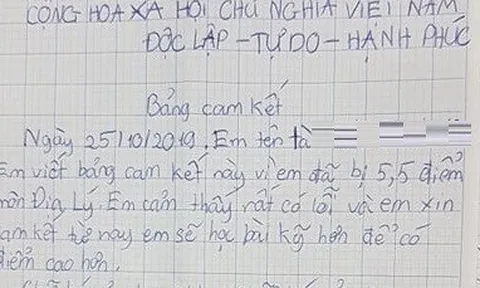 CỘNG HOÀ XÃ HỘI CHỦ NGHĨA VIỆT NAM
ĐỘC LẬP - TỰ DO - HẠNH PHÚC
Bảng cam kết
Ngày 25/10/2019. Em tên là
Em viết bảng cam kết này vì em đã bị 5,5 điểm
môn Địa Lý. Em cảm thấy rất có lỗi và em xin
cam kết từ nay em sẽ học bài kỹ hơn để có
điểm cao hơn.